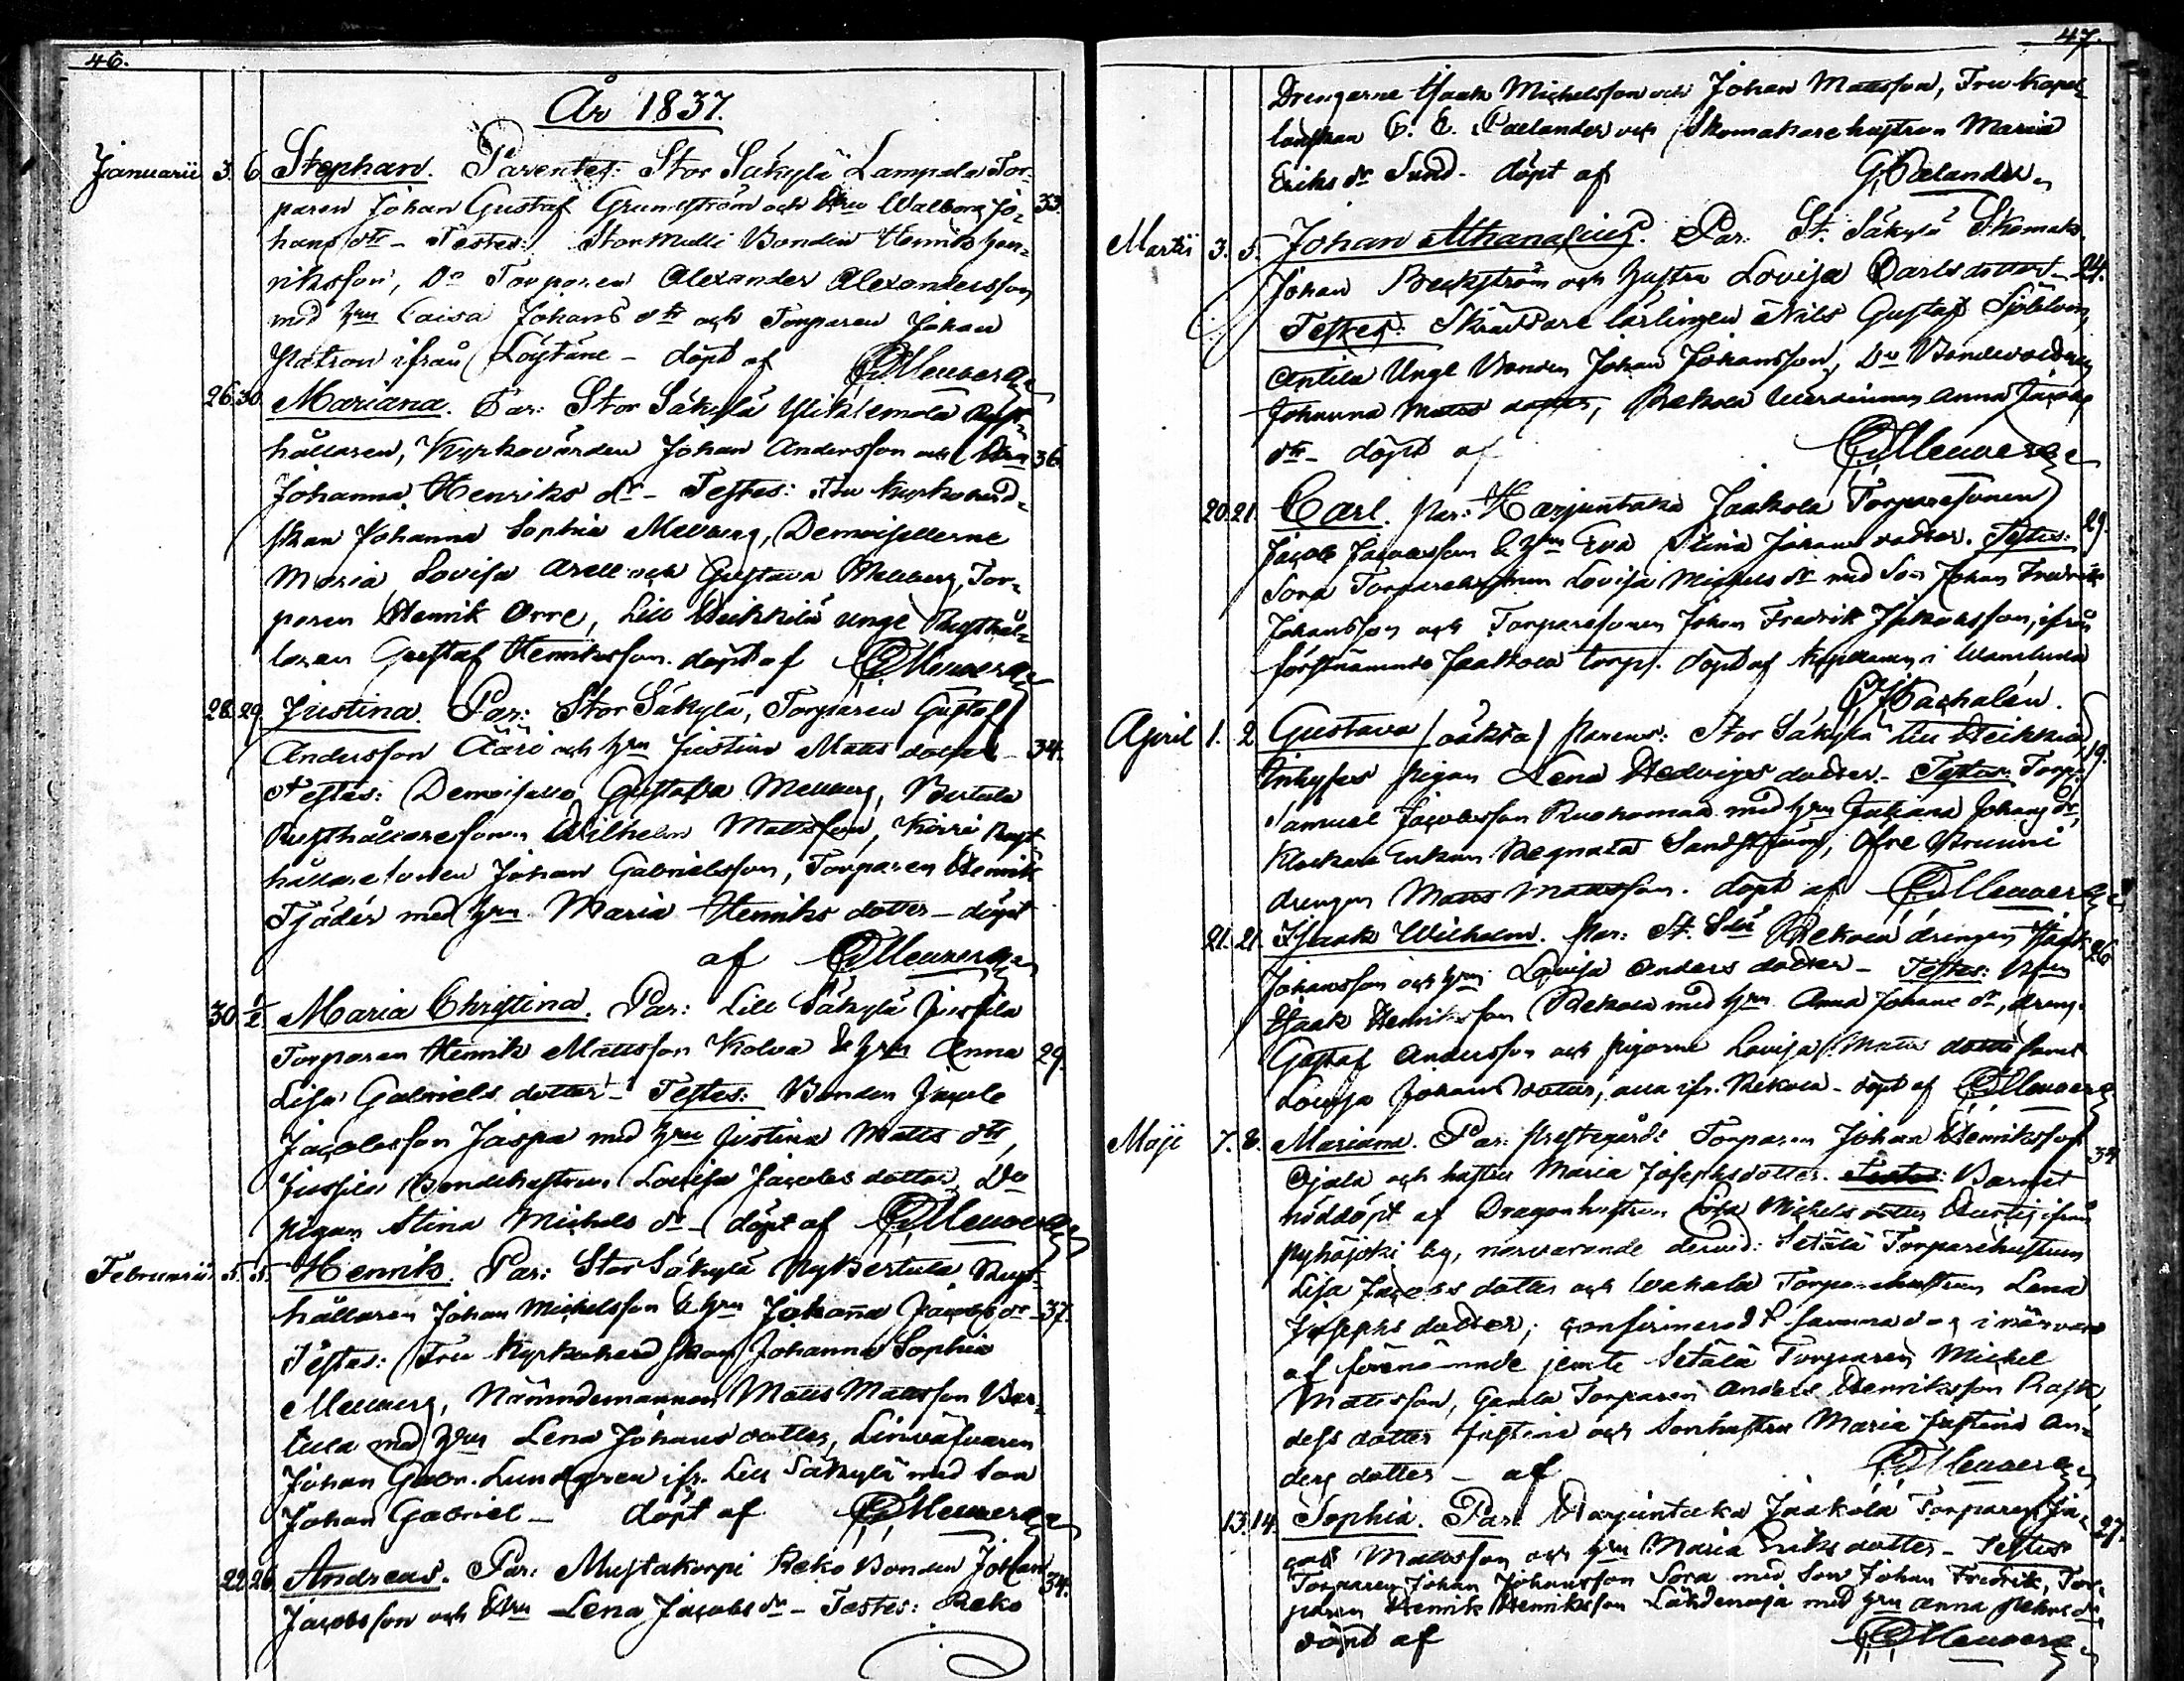 46.
År 1837.
Januarii 3. 6. Stephan. Parentes: Stor Säkylä Lampela Tor-
paren Johan Gustaf Grunström och Hru Walborg Jo- 33.
hans dtr - Testes: Bonden Henrik Hen-
riksson, Do Torparen Alexander Alexandersson
med hru Caisa Johans dtr och Torparen Johan
ifrån Löytäne - döpt af
26. 30. Mariana. Par: Stor Säkylä Rust-
hållaren, Kyrkovärden Johan Andersson och Hru 36.
Johanna Henriks dr - Testes: Fru Kyrkoherd-
skan Johanna Sophia Mellberg, Demoisellerne
Maria Lovisa Arell och Gustava Mellberg, Tor-
paren Henrik Orre, Lill Heikkilä unge Rusthål-
laren Gustaf Henriksson. döpt af
28. 29. Justina. Par: Stor Säkylä, Torparen Gustaf
Andersson Ääri och hru Justina Matts dotter - 34.
Testes: Demoiselle Gustafva Mellberg, Bertula
Rusthållaresonen Wilhelm Mattsson, Rust-
hållaresonen Johan Gabrielsson, Torparen Henrik
Tjäder med hru Maria Henriks dotter - döpt
af
30. Maria Christina. Par: Lill Säkylä Jussila
Torparen Henrik Mattsson Kolva & hru Anna 29.
Lisa Gabriels dotter - Testes: Bonden Jacob
Jacobsson Jaspa med hru Justina Matts dtr,
Jussila Bondehustrun Lovisa Jacobs dotter, Do
pigan Stina Michels dr - döpt af
Februarii 5. 5. Henrik. Par: Stor Säkylä Ny Bertula Rust-
hållaren Johan Michelsson & hru Johanna Jacobs dr - 37.
Testes: Fru Kyrkoherdskan Johanna Sophia
Mellberg, Nämndemannen Matts Mattsson Ber-
tula med hru Lena Johans dotter, Linväfvaren
Johan Gabr. Lundgren ifr. Lill Säkylä med son
Johan Gabriel - döpt af
22. 26. Andreas. Par: Mustakorpi Reko Bonden Johan 34.
Jacobsson och Hru Lena Jacobs dr - Testes: Reko
47.
Drengarne Isaak Michelsson och Johan Mattsson, Fru Kapel-
lanskan C. E. Paelander och Skomakarehustrun Maria
Eriks dr Sund - döpt af G. Paelander
Martii 3. 5. Johan Athanasius. Par: St. Säkylä Skomak.
Johan Beckström och hustru Lovisa Carlsdotter - 24.
Testes: Skräddare lärlingen Nils Gustaf
Antila Unge Bonden Johan Johansson, Do
Johanna Matts dotter, Rekola Anna Jacobs
dtr - döpt af
20. 21. Carl. Par: Harjuntaka Jaakola Torparesonen
Jacob Jacobsson & hru Eva Stina Johans dotter. Testes: 29.
Sora Torparehustrun Lovisa Michels dr med Son Johan Fredrik
Johansson och Torparesonen Johan Fredrik ifrån
förstnämnde Jaakola torp. döpt af i
April 1. 2. Gustava (oäkta) Parens: Stor Säkylä Lill Heikkilä 19.
Inhyses pigan Lena Hedvigs dotter - Testes: Torp.
Samuel Jacobsson Ruohomaa med hru Juliana Johans dr,
Klockare Enkan Regnata
drengen Matts Mattsson. döpt af
21. 21. Isaak Wilhelm. Par: St. Rekola drengen Isaak 26.
Johansson och hru Lovisa Anders dotter - Testes:
Isaak Henriksson Rekola med hru Anna Johans dr, dreng.
Gustaf Andersson och pigorne Lovisa Matts dotter samt
Lovisa Johans dotter, alla ifr. Rekola - döpt af
Maji 7. 8. Mariana. Par: Prestegårds Torparen Johan Henriksson 34.
Ojala och hustru Maria Josephsdotter. Testes: Barnet
nöddöpt af Dragonhustrun Lisa Michels dotter ifrån
Pyhäjoki by, närvarande dervid: Setälä Torparehustrun
Lisa Jacobs dotter och Torparehustrun Lena
Josephs dotter; confirmerad samma dag i närvaro
af förenämnde jemte Setälä Torparen Michel
Mattsson, Gamla Torparen Anders Henriksson
dess dotter Justina och Sonhustru Maria Justina An-
ders dotter - af
13. 14. Sophia. Par: Harjuntaka Jaakola Torparen Ja- 27.
cob Mattsson och hru Maria Eriks dotter - Testes
Torparen Johan Johansson Sora med Son Johan Fredrik, Tor-
paren Henrik Henriksson Lähdenoja med hru Anna
döpt af